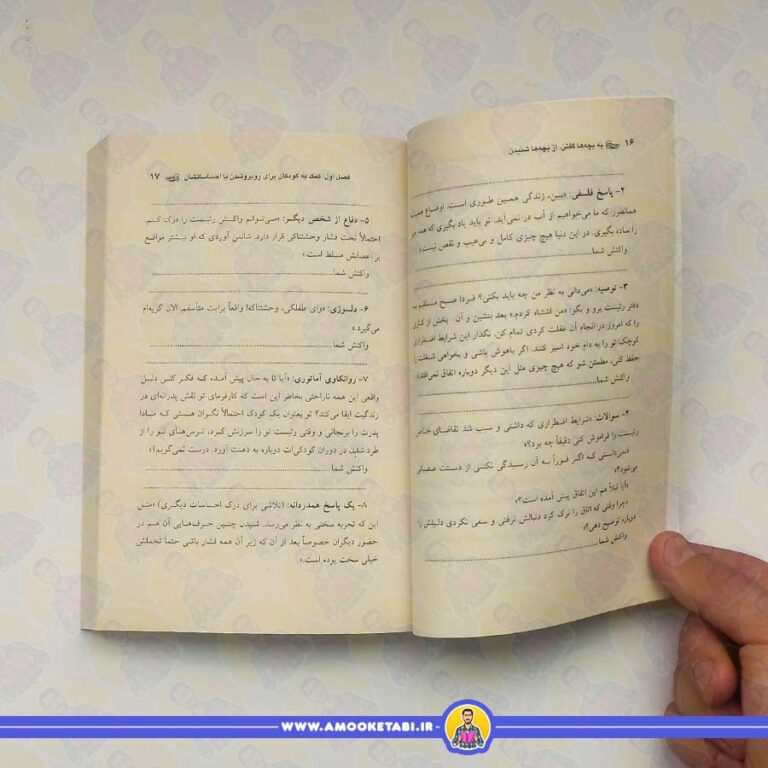 ۱۶ به بچه‌ها گفتن، از بچه‌ها شنیدن
۲- پاسخ فلسفی: «ببین، زندگی همین طوری است. اوضاع همیشه
همانطور که ما می‌خواهیم از آب در نمی‌آید. تو باید یاد بگیری که همه چیز
را ساده بگیری. در این دنیا هیچ چیزی کامل و بی‌عیب و نقص نیست.»
واکنش شما
۳- توصیه: «می‌دانی به نظر من چه باید بکنی؟ فردا صبح مستقیم به
دفتر رئیست برو و بگو: «من اشتباه کردم.» بعد بنشین و آن بخش از کاری
را که امروز در انجام آن غفلت کردی تمام کن. نگذار این شرایط اضطراری
کوچک تو را به دام خود اسیر کنند. اگر باهوش باشی و بخواهی شغلت را
حفظ کنی، مطمئن شو که هیچ چیزی مثل این دیگر دوباره اتفاق نمی‌افتد.»
واکنش شما
۴- سوالات: «شرایط اضطراری که داشتی و سبب شد تقاضای خاص
رئیست را فراموش کنی دقیقاً چه بود؟»
«نمی‌دانستی که اگر فوراً به آن رسیدگی نکنی از دستت عصبانی
می‌شود؟»
«آیا قبلاً هم این اتفاق پیش آمده است؟»
«چرا وقتی که اتاق را ترک کرد دنبالش نرفتی و سعی نکردی دلیلش را
دوباره توضیح دهی؟»
واکنش شما
فصل اول: کمک به کودکان برای روبروشدن با احساساتشان ۱۷
۵- دفاع از شخص دیگر: «می‌توانم واکنش رئیست را درک کنم.
احتمالاً تحت فشار وحشتناکی قرار دارد. شانس آوردی که او بیشتر مواقع
بر اعصابش مسلط است.»
واکنش شما
۶- دلسوزی: «وای طفلکی، وحشتناکه! واقعاً برایت متأسفم. الان گریه‌ام
می‌گیرد.»
واکنش شما
۷- روانکاوی آماتوری: «آیا تا به حال پیش آمده که فکر کنی دلیل
واقعی این همه ناراحتی بخاطر این است که کارفرمای تو نقش پدرانه‌ای در
زندگیت ایفا می‌کند؟ تو بعنوان یک کودک احتمالاً نگران هستی که مبادا
پدرت را برنجانی و وقتی رئیست تو را سرزنش کرد، ترس‌های تو را از
طرد شدن در دوران کودکی‌ات دوباره به ذهنت آورد. درست نمی‌گویم؟»
واکنش شما
۸- یک پاسخ همدردانه: (تلاشی برای درک احساسات دیگری) «مثل
این که تجربه سختی به نظر می‌رسد. شنیدن چنین حرف‌هایی آن هم در
حضور دیگران خصوصاً بعد از آن که زیر آن همه فشار باشی حتما تحملش
خیلی سخت بوده است.»
WWW.AMOOKETABI.IR